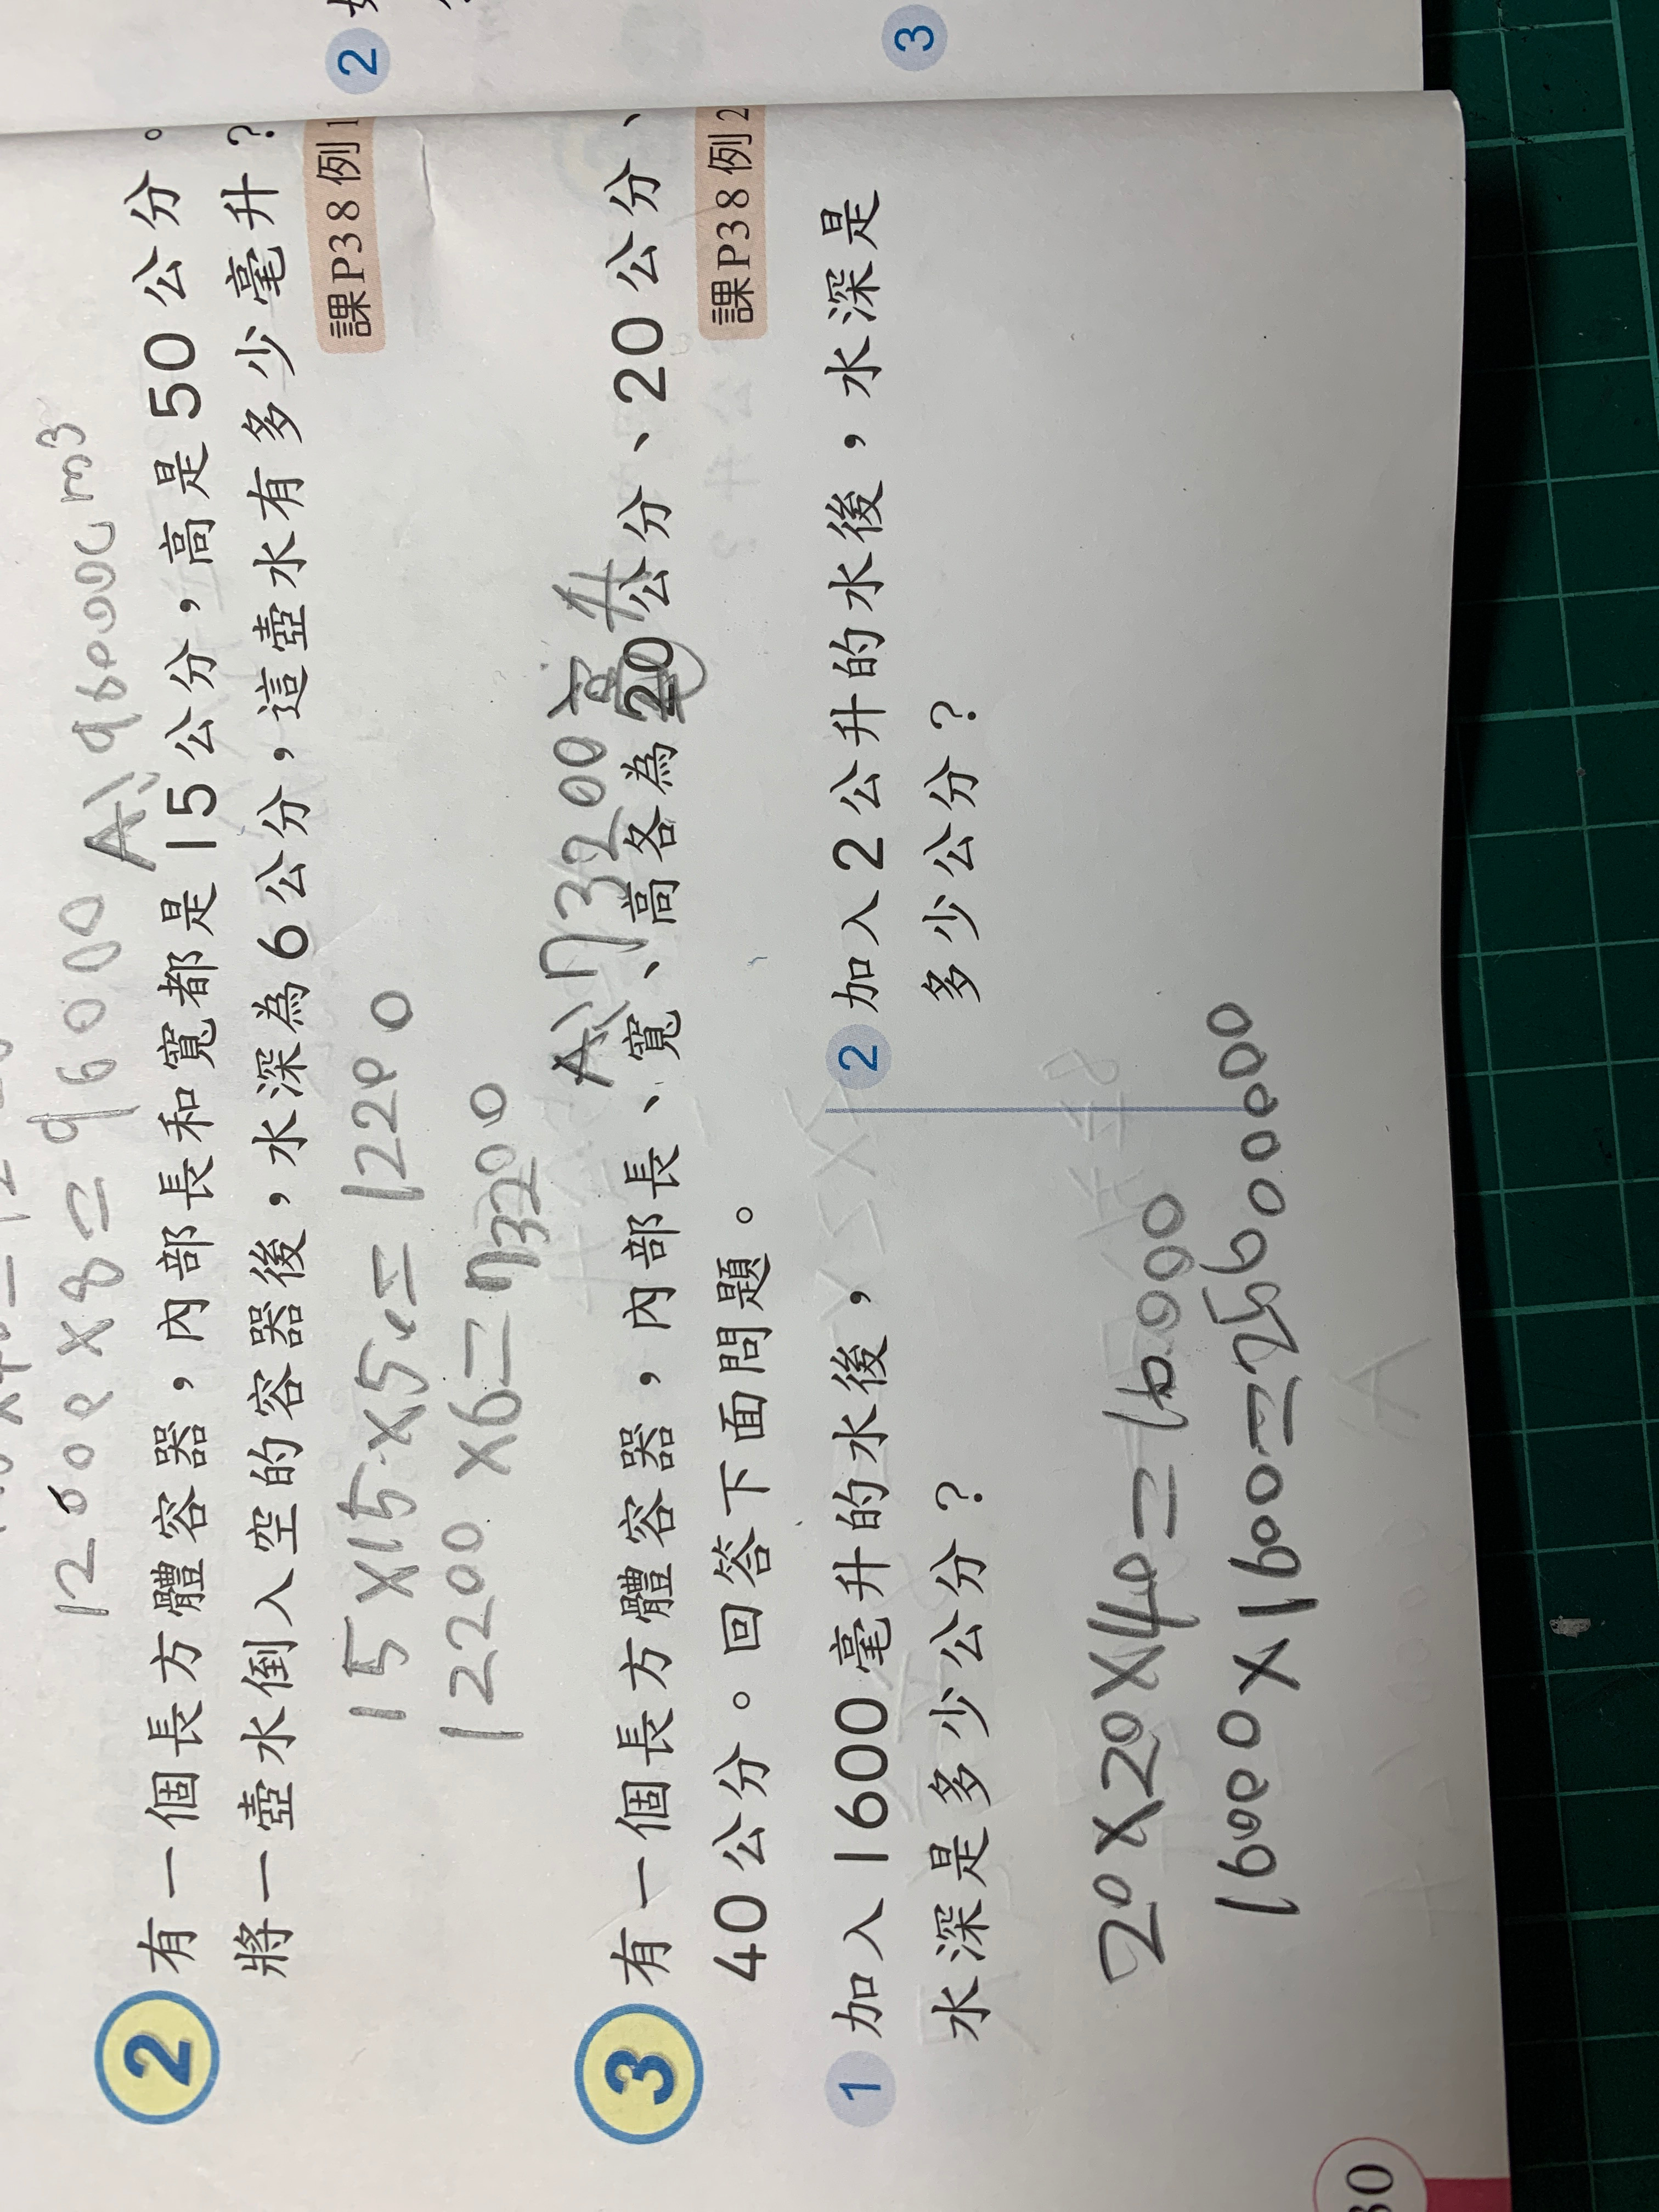 1200×8=96000 A\96000cm3
2 有一個長方體容器，內部長和寬都是15公分，高是50公分。
將一壺水倒入空的容器後，水深為6公分，這壺水有多少毫升？
課P38例1
15×15×5.=1220 0
12200×6=73200
A\73200毫升
3 有一個長方體容器，內部長、寬、高各為20公分、20公分、
40公分。回答下面問題。
課P38例2
1 加入1600毫升的水後，
水深是多少公分？
20×20×40=16000
16000×1600=2560,0000
2 加入2公升的水後，水深是
多少公分？
30
2
3